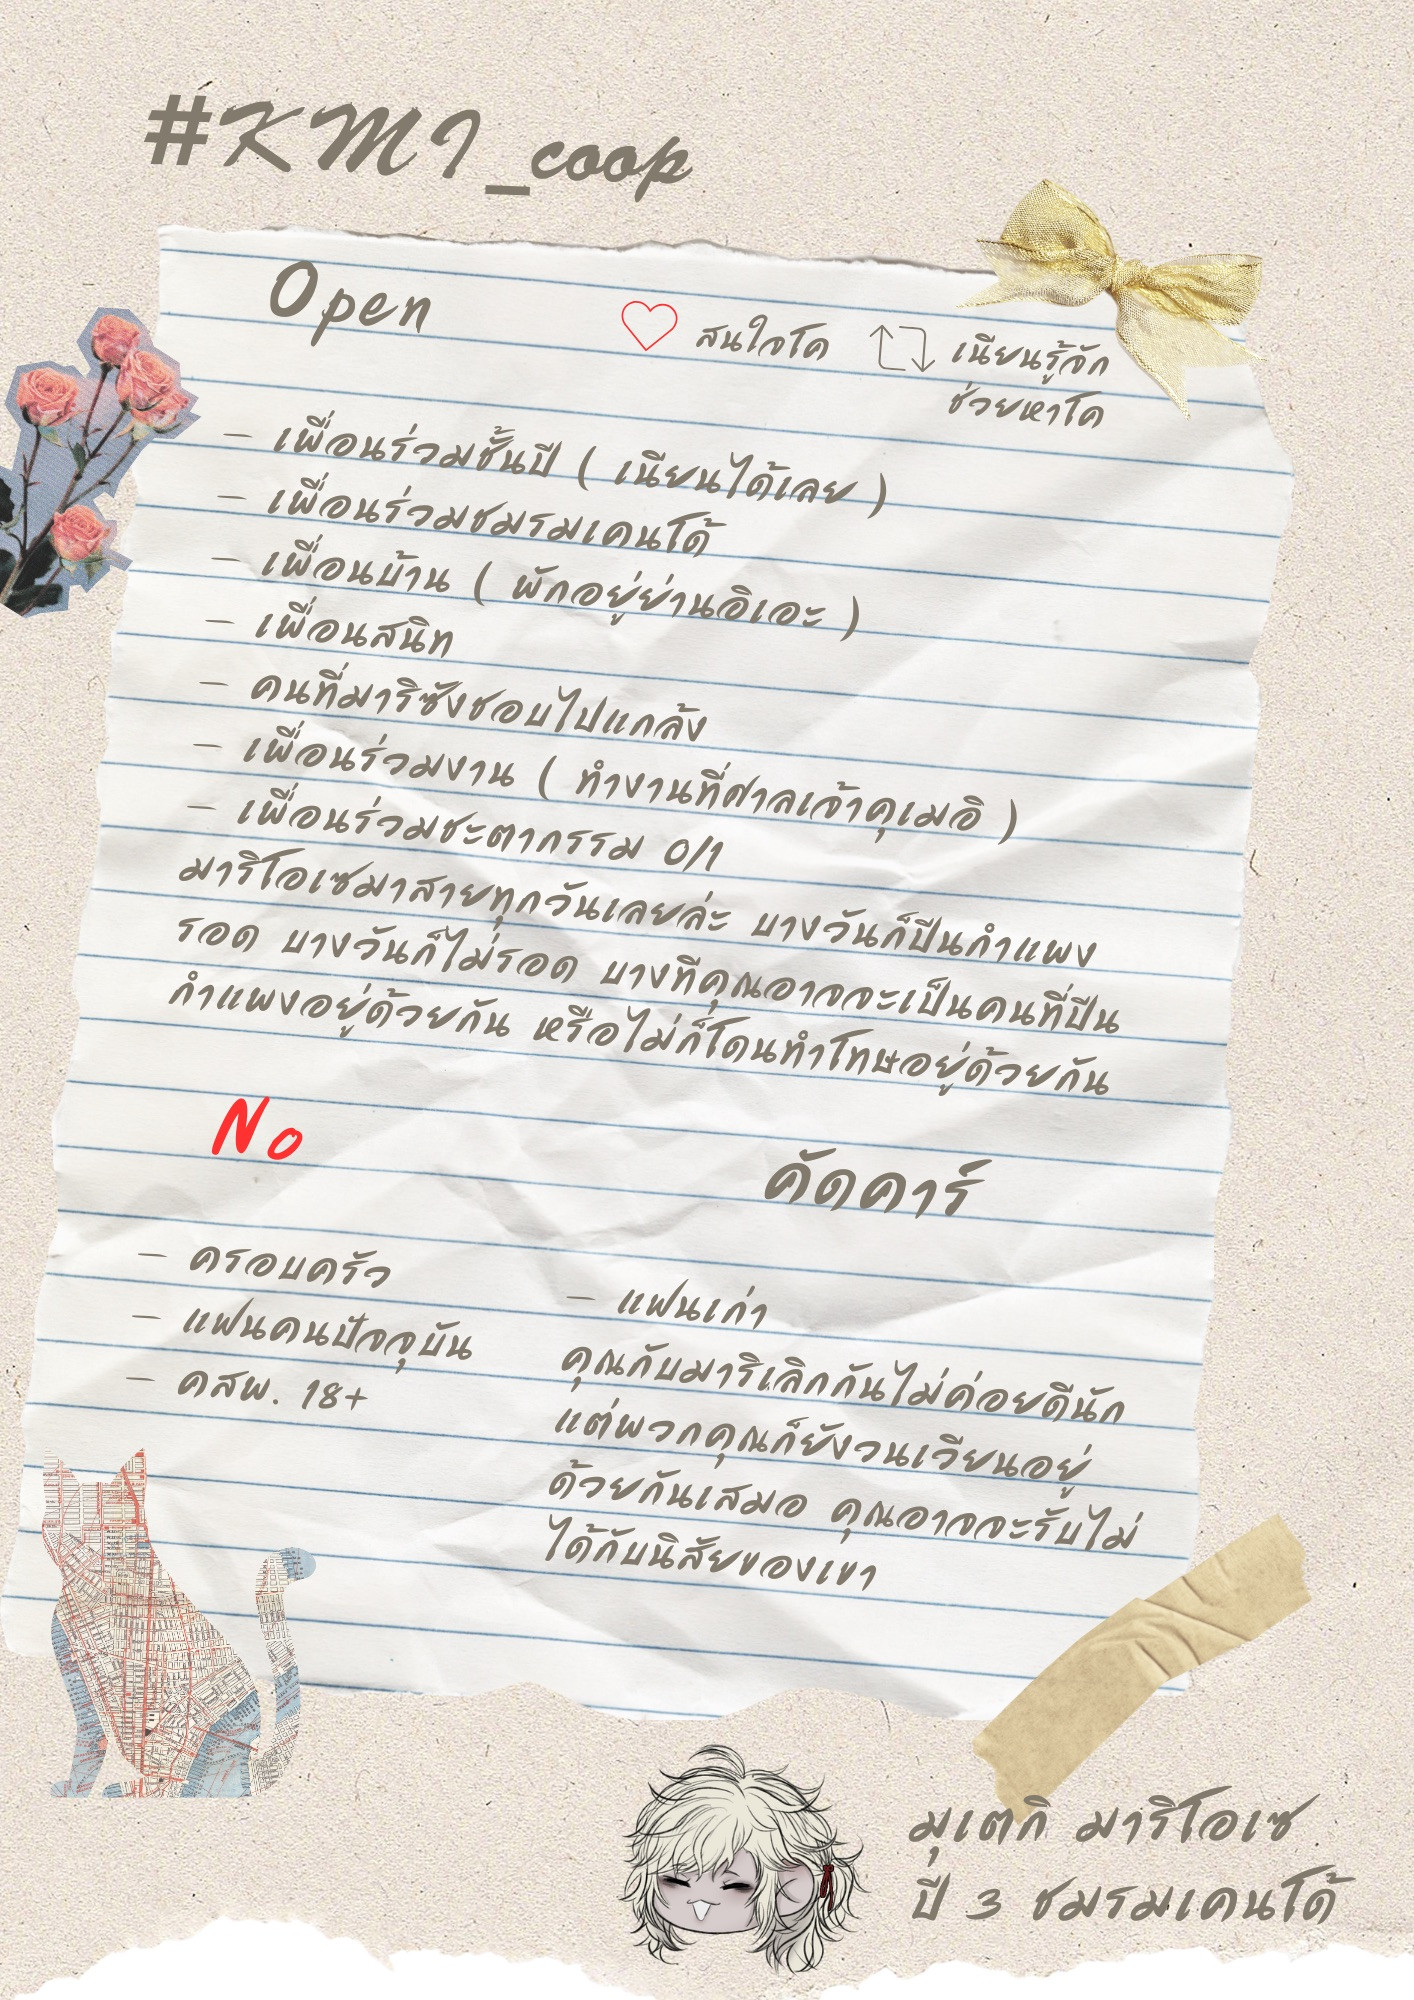 #KMI_coop
Open
สนใจโค
เนียนรู้จัก
ช่วยหาโค
- เพื่อนร่วมชั้นปี ( เนียนได้เลย )
- เพื่อนร่วมชมรมเคนโด้
- เพื่อนบ้าน ( พักอยู่ย่านอิเอะ )
- เพื่อนสนิท
- คนที่มาริซังชอบไปแกล้ง
- เพื่อนร่วมงาน ( ทำงานที่ศาลเจ้าคุเมอิ )
- เพื่อนร่วมชะตากรรม 0/1
มาริโอเซมาสายทุกวันเลยล่ะ บางวันก็ปีนกำแพง
รอด บางวันก็ไม่รอด บางทีคุณอาจจะเป็นคนที่ปีน
กำแพงอยู่ด้วยกัน หรือไม่ก็โดนทำโทษอยู่ด้วยกัน
No
- ครอบครัว
- แฟนคนปัจจุบัน
- คสพ. 18+
คัดคาร์
- แฟนเก่า
คุณกับมาริเลิกกันไม่ค่อยดีนัก
แต่พวกคุณก็ยังวนเวียนอยู่
ด้วยกันเสมอ คุณอาจจะรับไม่
ได้กับนิสัยของเขา
มุเตกิ มาริโอเซ
ปี 3 ชมรมเคนโด้